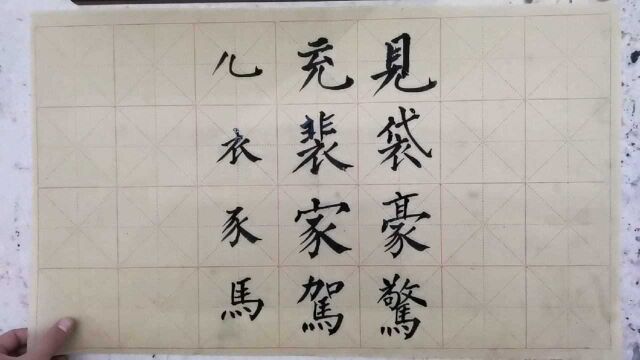 儿充見
衣裴袋
豕家豪
馬駕驚